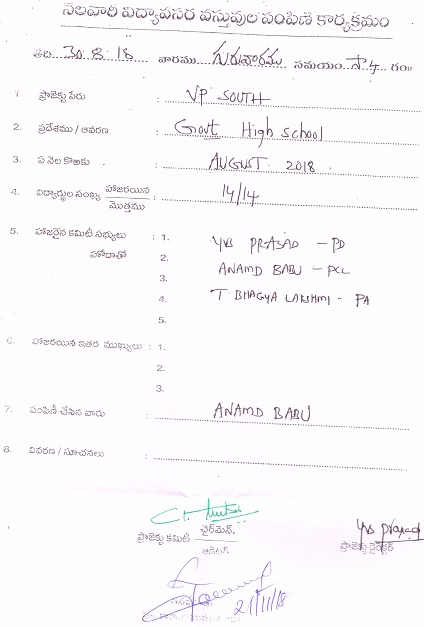 నెలవారీ విద్యావసర వస్తువుల పంపిణీ కార్యక్రమం
తేది 30.8.18 వారము గురువారము సమయం సా.4 గం॥
1. ప్రాజెక్టు పేరు : VP SOUTH
2. ప్రదేశము / ఆవరణ : Govt High School
3. ఏ నెల కొఱకు : AUGUST 2018
4. విద్యార్థుల సంఖ్య హాజరయిన / మొత్తము : 14/14
5. హాజరైన కమిటీ సభ్యులు : 1. YVB PRASAD - PD
హోదాతో 2.
3. ANAMD BABU - PCC
4. T BHAGYA LAKSHMI - PA
5.
6. హాజరయిన ఇతర ముఖ్యులు : 1.
2.
3.
7. పంపిణీ చేసిన వారు : ANAMD BABU
8. వివరణ / సూచనలు :
ప్రాజెక్టు కమిటీ ఛైర్మెన్.
ఆడిటర్
yvb prasad
ప్రాజెక్టు డైరెక్టర్
21/11/18